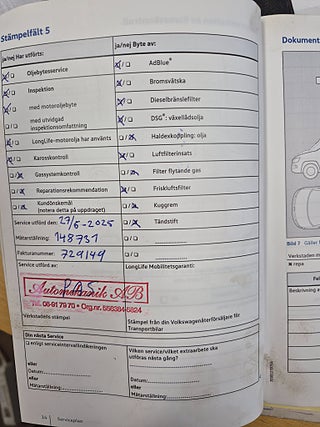 Stämpelfält 5
ja/nej Har utförts:
ja/nej Byte av:
Oljebytesservice
AdBlue®
Inspektion
Bromsvätska
med motoroljebyte
Dieselbränslefilter
med utvidgad
inspektionsomfattning
DSG®: växellådsolja
LongLife-motorolja har använts
Haldexkoppling: olja
Karosskontroll
Luftfilterinsats
Gassystemkontroll
Filter flytande gas
Reparationsrekommendation
Friskluftsfilter
Kundönskemål
(notera detta på uppdraget)
Kuggrem
Service utförd den: 27/5-2025
Tändstift
Mätarställning: 148731
Fakturanummer: 729149
Service utförd av:
LongLife Mobilitetsgaranti:
Automekanik AB
Tel. 08-91 79 70 • Org.nr. 556384-5824
Verkstadens stämpel
Stämpel från din Volkswagenåterförsäljare för
Transportbilar
Din nästa Service
enligt serviceintervallindikeringen
eller
Datum:
eller
Mätarställning:
Vilken service/vilket extraarbete ska
utföras nästa gång?
Datum:
Mätarställning:
24
Serviceplan
Dokument
Bild 7
Gäller f
Verkstadens
repa
Fel
Beskrivning a